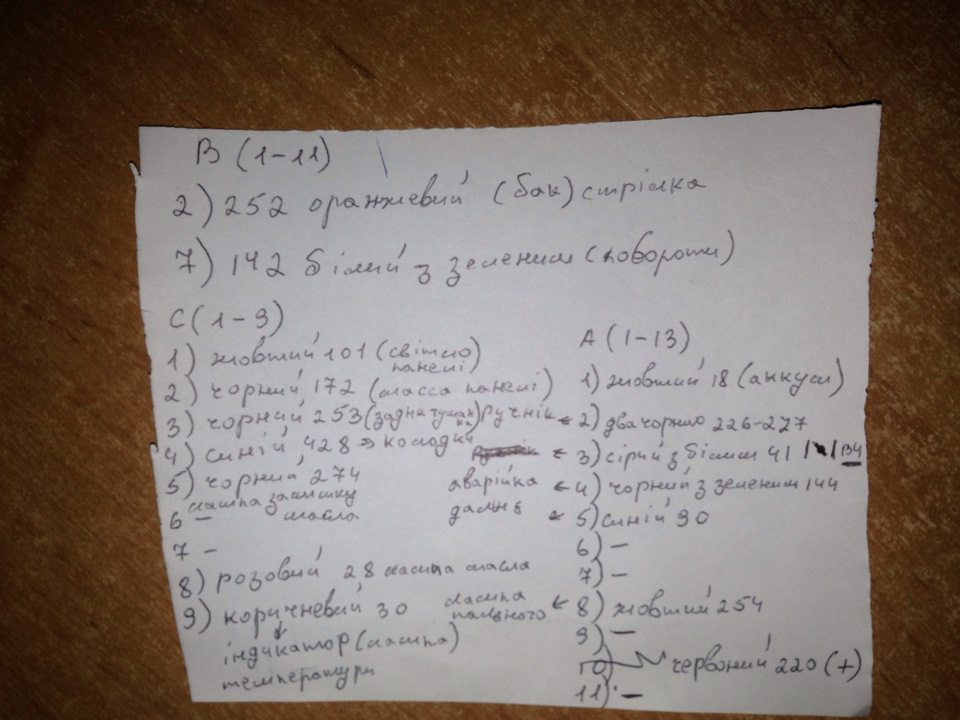 В (1-11)
2) 252 оранжевий (бак) стрілка
7) 142 білий з зеленим (повороти)
С (1-9)
1) жовтий 101 (світло панелі)
2) чорний 172 (масса панелі)
3) чорний 253 (задна туманка)
4) синій 428 → колодки
5) чорний 274
лампа залишку
масла
6 -
7 -
8) розовий 28 лампа масла
9) коричневий 30
індикатор (лампа)
температури
А (1-13)
1) жовтий 18 (аккум)
ручнік ← 2) два чорних 226-227
← 3) сірий з білим 41 / В4
аварійка ← 4) чорний з зеленим 144
дальнє ← 5) синій 90
6) -
7) -
лампа пального ← 8) жовтий 254
9) -
10 червоний 220 (+)
11) -